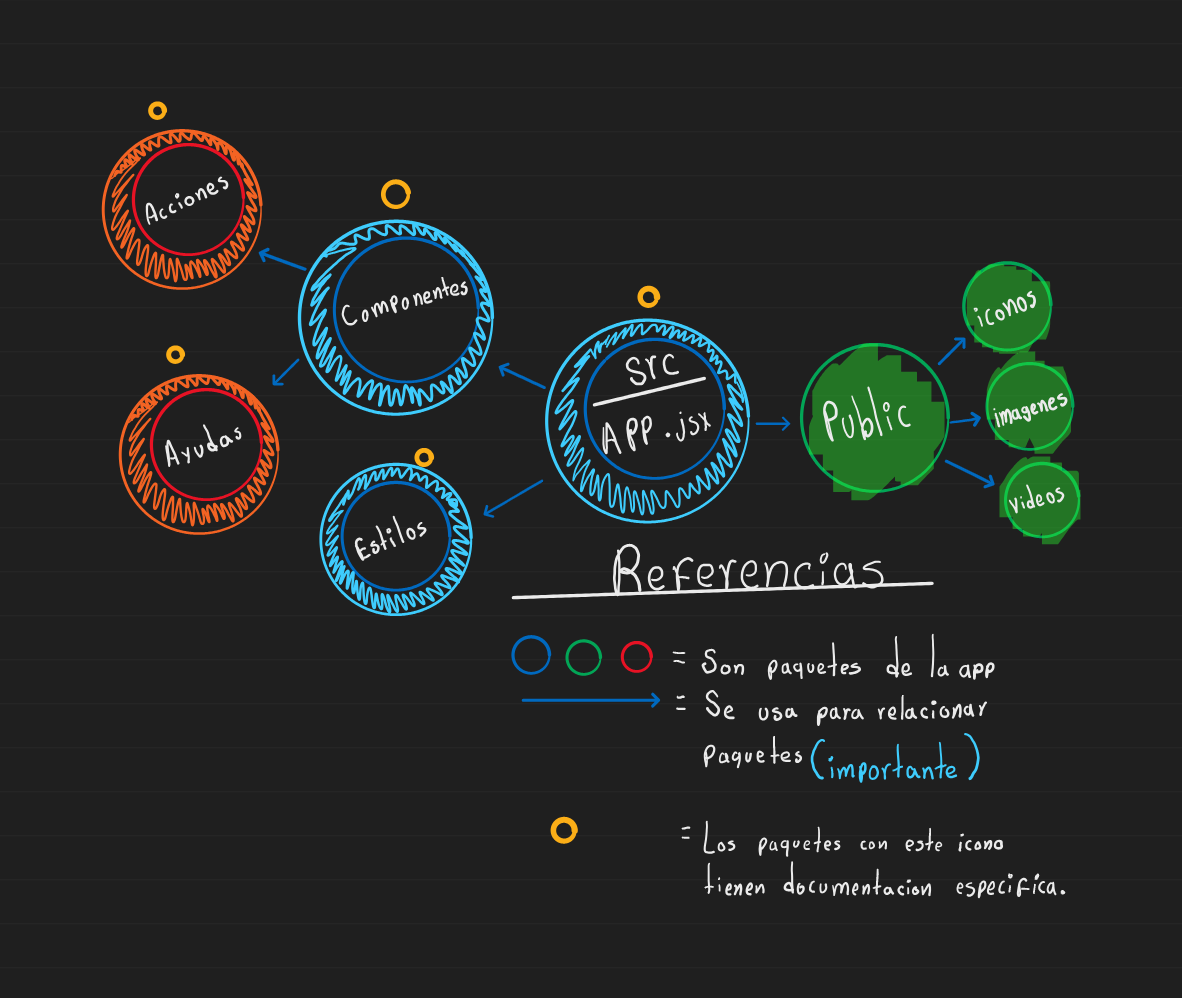 Acciones
Componentes
Ayudas
Estilos
Src
APP.jsx
Public
iconos
imagenes
videos
Referencias
= Son paquetes de la app
= Se usa para relacionar
paquetes (importante)
= Los paquetes con este icono
tienen documentacion especifica.